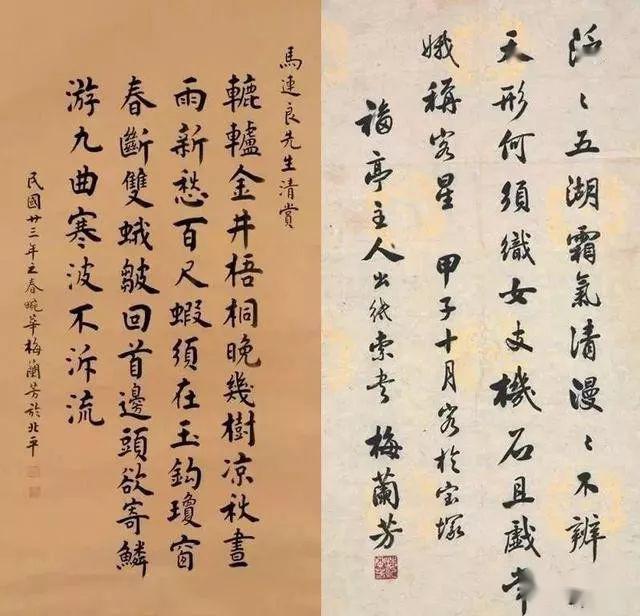 馬連良先生清賞
轆轤金井梧桐晚幾樹凉秋晝
雨新愁百尺蝦須在玉鈎瓊窗
春斷雙蛾皺回首邊頭欲寄鱗
游九曲寒波不泝流
民國廿三年之春畹華梅蘭芳於北平
泛〻五湖霜氣清漫〻不辨
天形何須織女支機石且戲常
娥稱客星 甲子十月客於宝塚
福亭主人出紙索書 梅蘭芳